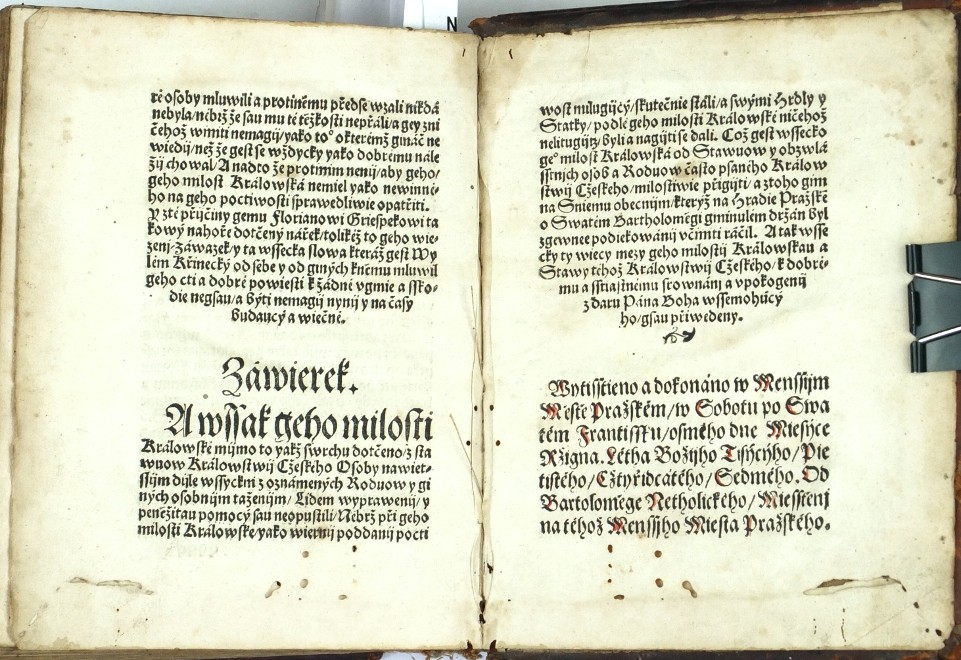 N
ré osoby mluwili a protiněmu předse wzali nikdá
nebyla/nébrž že sau mu té těžkosti nepřáli/a gey zni
čehož winiti nemagij/yako toº o kterémž gináč ne
wiedij/než že gest se wždycky yako dobrému nále
žij chowal/A nadto že protimm nenij/aby geho/
geho milost Králowská neměl yako newinné-
ho na geho poctiwosti sprawedliwie opatřiti.
Y zté přijčiny gemu Florianowi Griespekowi ta
kowý nahoře dotčený nářek/tolikéž to geho wie-
zenj/Záwazek/y ta wssecka slowa kteráž gest Wy
lém Křinecký od sebe y od giných kněmu mluwil
geho cti a dobré powiesti k žádné vgmie a ssko-
die negsau/a býti nemagij nynij y na časy
budaucý a wiečné.
Záwierek.
A wssak geho milosti
Králowské mijmo to yakž swrchu dotčeno/z sta
wuow Králowstwij Cžeského Osoby nawiet-
ssijm dijle wssyckni z oznámených Roduow y gi
ných osobnijm taženijm/ Lidem wyprawenij/ y
peněžitau pomocý sau neopustili/Nébrž při geho
milosti Králowské/yako wiernij poddanij pocti
wost milugijcý/skutečnie stáli/a swými Hrdly y
Statky/podlé geho milosti Králowské ničehož
nelitugijc/byli a nagijti se dali. Což gest wssecko
geº milost Králowská od Stawuow y obzwlá
sstnijch osob a Roduow často psaného Králow
stwij Cžeského/milostiwie přigijti/a ztoho gim
na Sniemu obecnijm/kterýž na Hradie Pražské
o Swatém Bartholomiegi giminulém držán byl
zgewnee podiekowánij včiniti ráčil. A tak wsse
cky ty wiecy mezy geho milostij Králowskau a
Stawy téhož Králowstwij Cžeského/k dobré-
mu a sstiastnému srownánj a vpokogenij
z daru Pána Boha wssemohúcý
ho/gsau přiwedeny.
Wytisstieno a dokonáno w Menssijm
Miestie Pražském/w Sobotu po Swa
tém Frantissku/osmého dne Miesýce
Ržigna. Létha Božijho Tisýcýho/Pie
tistého/Cžtyřidcátého/Sedmého. Od
Bartolomiege Netholického/Miesstienj
na téhož Menssijho Miesta Pražského.